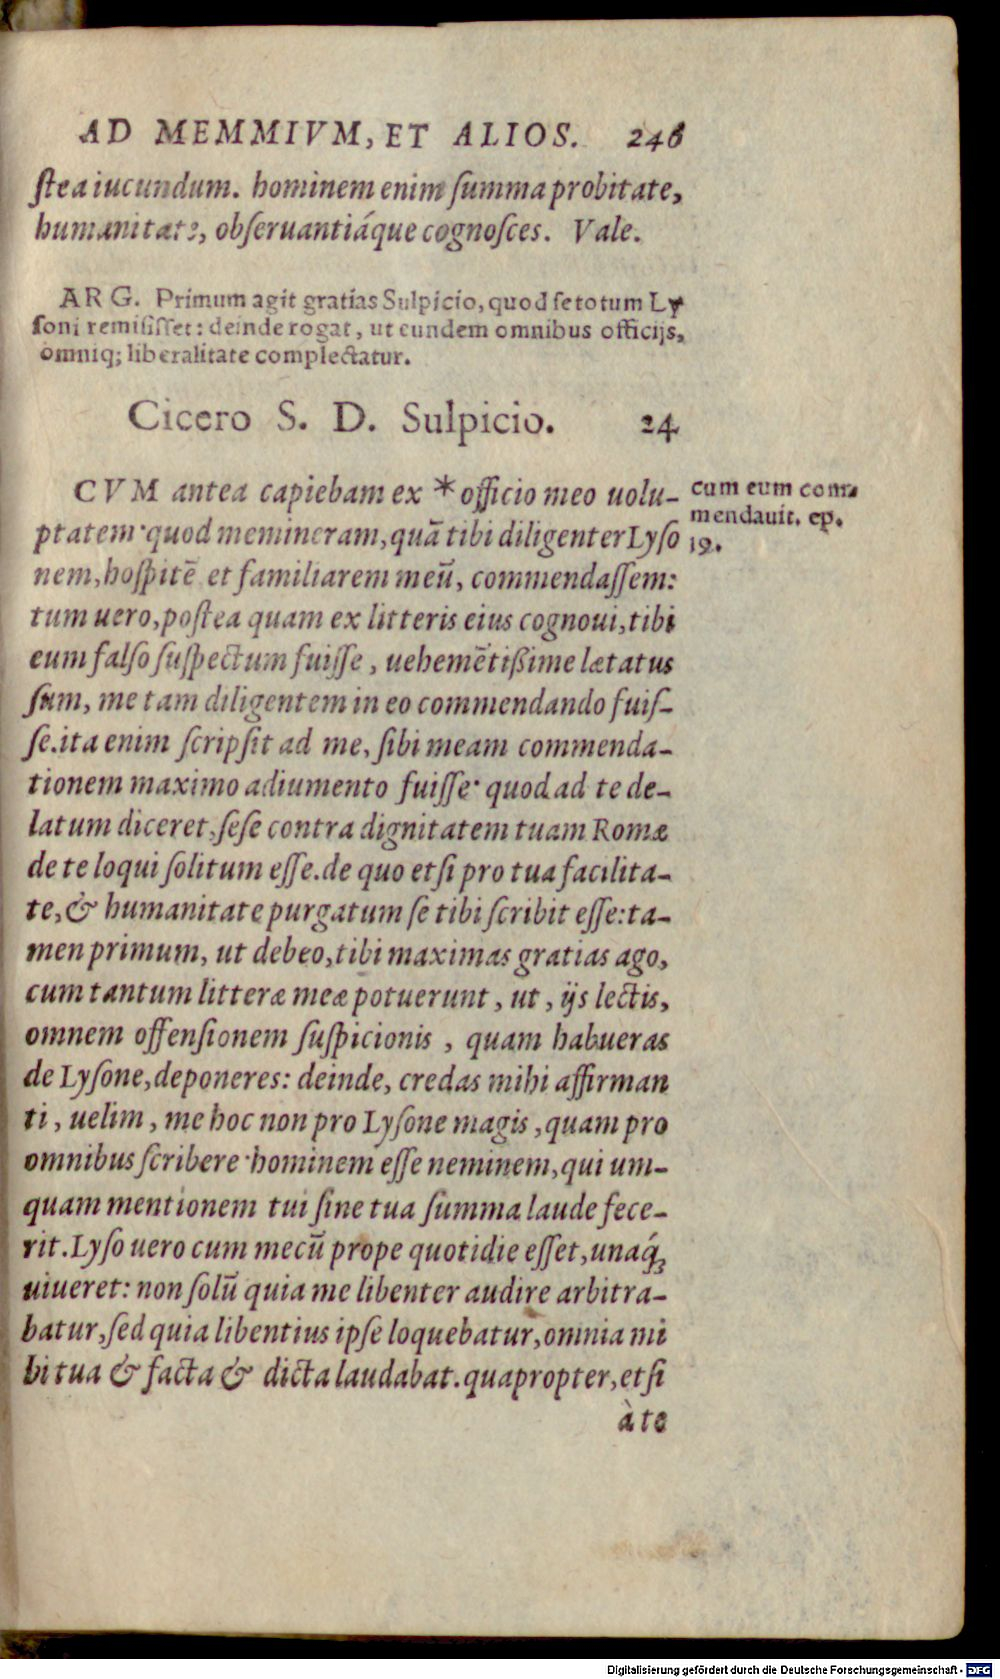 AD MEMMIVM, ET ALIOS. 246
stea iucundum. hominem enim summa probitate,
humanitate, obseruantiáque cognosces. Vale.
ARG. Primum agit gratias Sulpicio, quod se totum Ly
soni remisisset: deinde rogat, ut eundem omnibus officijs,
omniq; liberalitate complectatur.
Cicero S. D. Sulpicio. 24
CVM antea capiebam ex * officio meo uolu-
ptatem· quod memineram, quā tibi diligenter Lyso
nem, hospitē et familiarem meū, commendassem:
tum uero, postea quam ex litteris eius cognoui, tibi
eum falso suspectum fuisse, uehemētißime lætatus
sum, me tam diligentem in eo commendando fuis-
se. ita enim scripsit ad me, sibi meam commenda-
tionem maximo adiumento fuisse· quod ad te de-
latum diceret, sese contra dignitatem tuam Romæ
de te loqui solitum esse. de quo etsi pro tua facilita-
te, & humanitate purgatum se tibi scribit esse: ta-
men primum, ut debeo, tibi maximas gratias ago,
cum tantum litteræ meæ potuerunt, ut, ijs lectis,
omnem offensionem suspicionis, quam habueras
de Lysone, deponeres: deinde, credas mihi affirman
ti, uelim, me hoc non pro Lysone magis, quam pro
omnibus scribere· hominem esse neminem, qui um-
quam mentionem tui sine tua summa laude fece-
rit. Lyso uero cum mecū prope quotidie esset, unaq́;
uiueret: non solū quia me libenter audire arbitra-
batur, sed quia libentius ipse loquebatur, omnia mi
hi tua & facta & dicta laudabat. quapropter, etsi
à te
cum eum com-
mendauit. ep.
19.
Digitalisierung gefördert durch die Deutsche Forschungsgemeinschaft - DFG